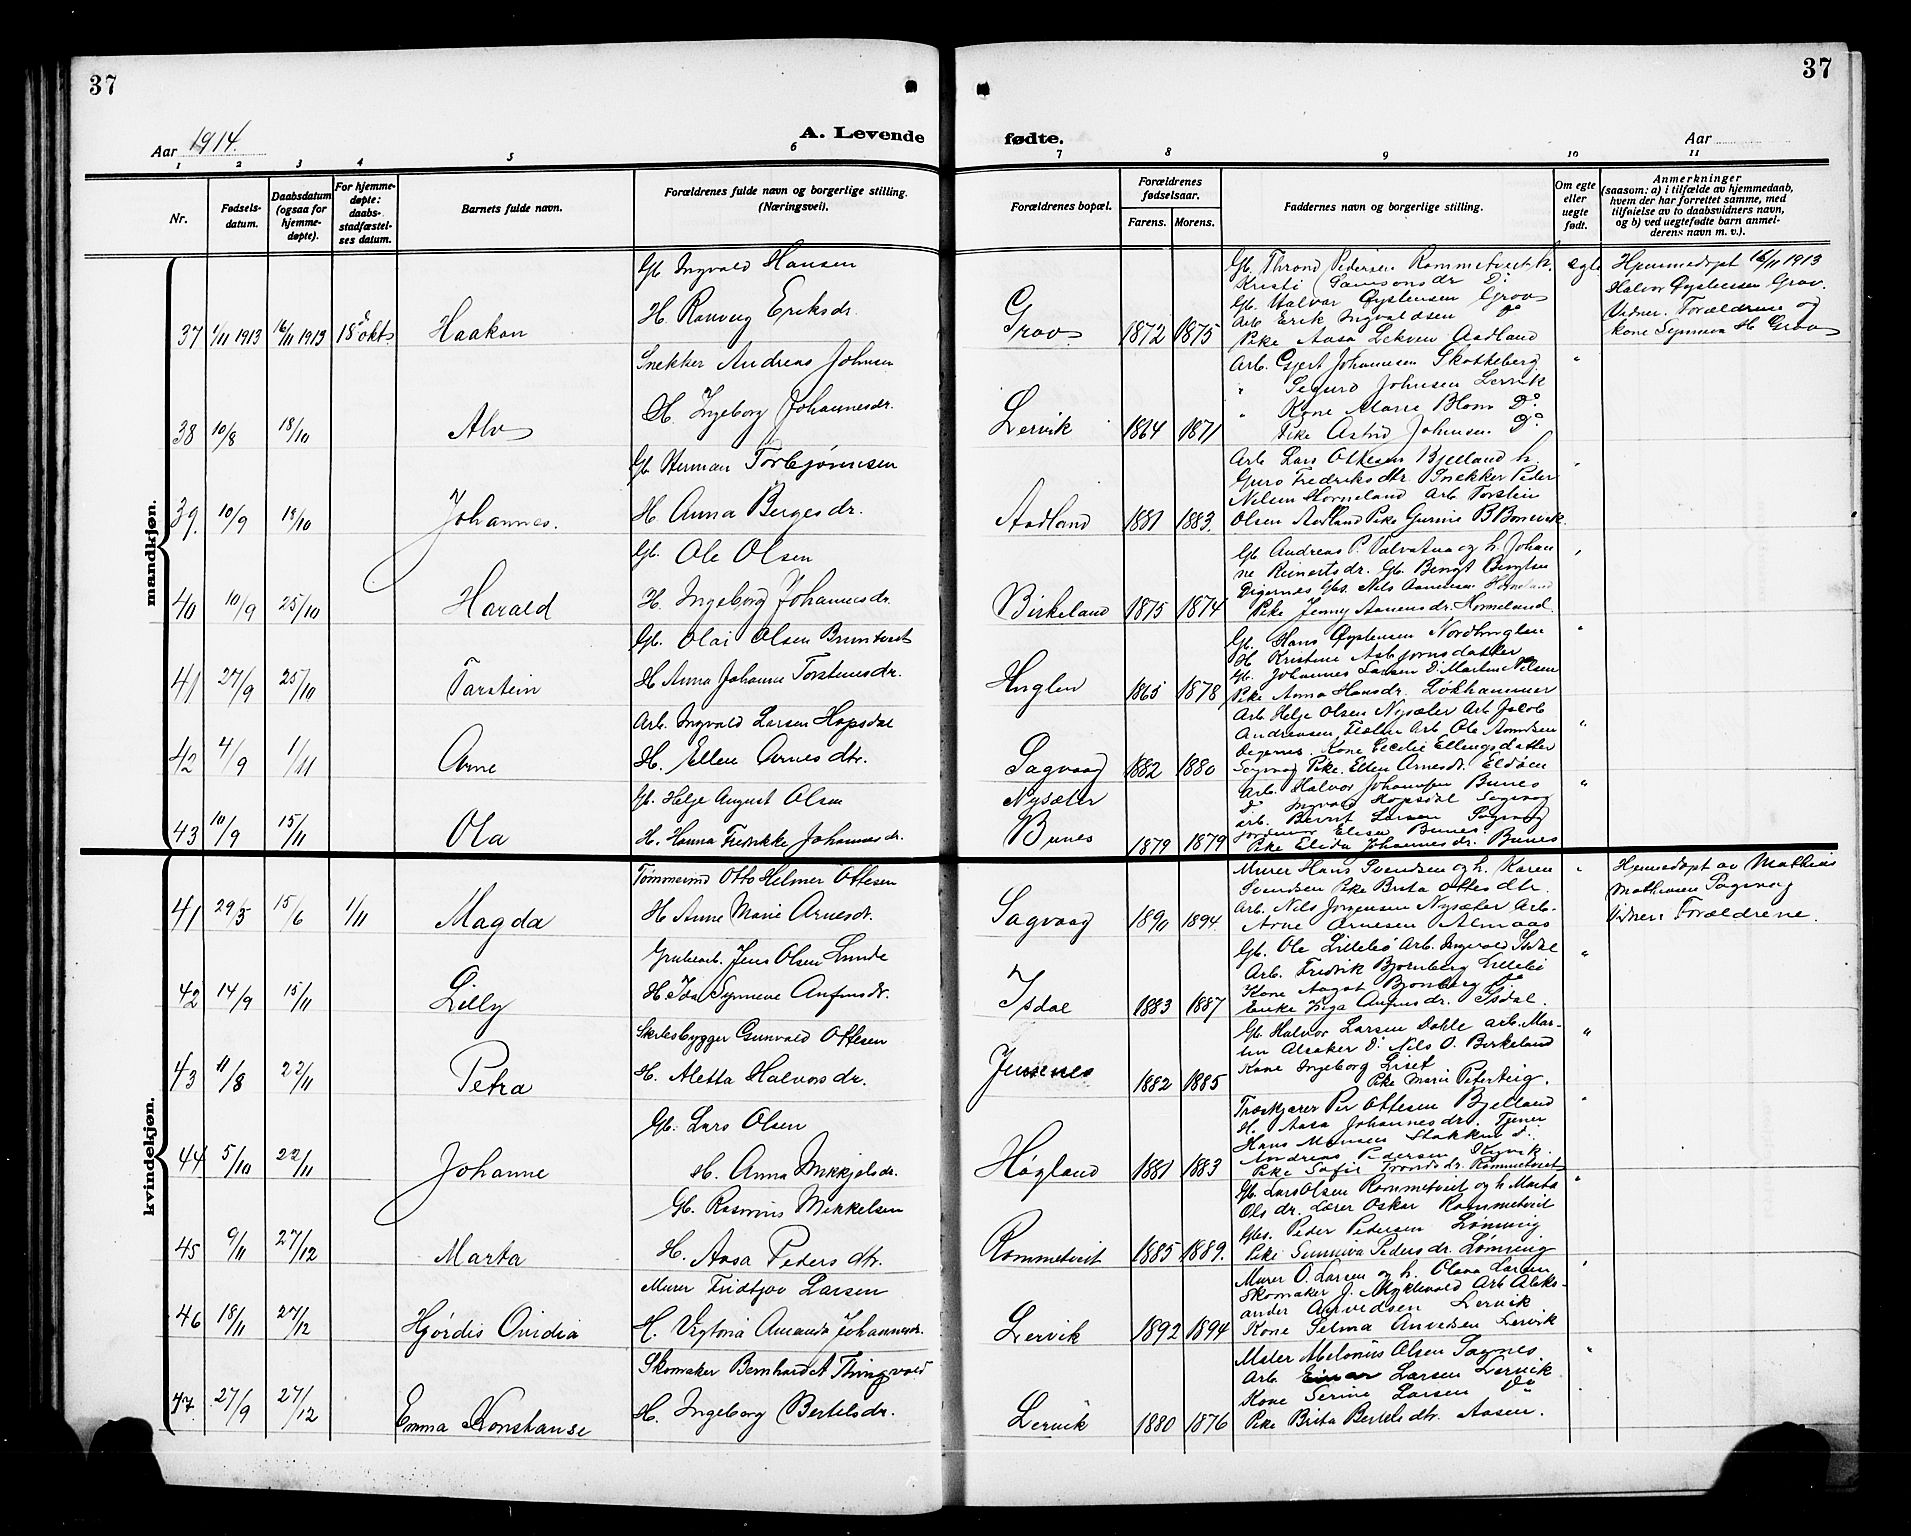 37
37
Aar 1914.
A. Levende
fødte.
Aar
1 2 3 4 5 6 7 8 9 10 11
Nr.
Fødsels-
datum.
Daabsdatum
(ogsaa for
hjemme-
døpte).
For hjemme-
døpte:
daabs-
stadfæstel-
ses datum.
Barnets fulde navn.
Forældrenes fulde navn og borgerlige stilling.
(Næringsvei).
Forældrenes bopæl.
Forældrenes
fødselsaar.
Farens. Morens.
Faddernes navn og borgerlige stilling.
Om egte
eller
uegte
født.
Anmerkninger
(saasom: a) i tilfælde av hjemmedaab,
hvem der har forrettet samme, med
tilføielse av to daabsvidners navn,
og b) ved uegtefødte barn anmel-
derens navn m. v.).
mandkjøn.
37 1/11 1913 16/11 1913 18 okt Haakon
Gb. Ingvald Hansen
H. Ranveig Eriksdr.
Grov 1872 1875
Gb. Thrond Pedersen Rommetveit h.
Kristi Samsonsdr Do
Gb. Halvor Øystensen Grov
Arb. Erik Ingvaldsen Do
Pike Aasa Lekven Aadland
egte
Hjemmedøpt 16/11 1913
Halvor Øystensen Grov.
Vidner: Forældrene og
kone Synneva H. Grov
38 10/8 18/10 Alv
Snekker Andreas Johnsen
H. Ingeborg Johannesdr.
Lervik 1864 1871
Arb. Gjert Johannesen Skotteberg
" Sigurd Johnsen Lervik
" Kone Marie Blom Do
Pike Astrid Johnsen Do
"
39. 10/9 18/10 Johannes.
Gb. Herman Torbjørnsen
H. Anna Bergesdr.
Aadland 1881 1883.
Arb. Lars Olsen Bjelland h.
Guro Fredriksdtr. Snekker Peder
Nilsen Horneland Arb. Torstein
Olsen Aadland Pike
40 10/9 25/10 Harald
Gb. Ole Olsen
H. Ingeborg Johannesdr.
Birkeland 1875 1874
Gb. Andreas P. Valvatna og h. Johan
ne Reinertsdr. Gb. Bengt Bengtsen
Digernes Gbs. Nils Aamesen Horneland
Pike Jenny Aamensdr. Horneland.
41 27/9 25/10 Tarstein
Gb. Olai Olsen Brumtveit
H. Anna Johanne Torstensdr.
Huglen 1865 1878
Gb. Hans Øystensen Nordhuglen
H. Kristine Asbjørnsdatter
Gb. Johannes Larsen Do Martin Nilsen
Pike Anna Hansdr. Løkhammer
"
42 4/9 1/11 Arne
Arb. Ingvald Larsen Hopsdal
H. Ellen Arnesdtr.
Sagvaag 1882 1880
Arb. Helje Olsen Nysæter Arb. Jacob
Andreassen Arb. Ole
Digernes. Kone Cecilie Ellingsdatter
Sagvaag Pike. Ellen Arnesdr. Eldøen
"
43 10/9 15/11 Ola
Gb. Helje August Olsen
H. Hanna Fredrikke Johannesdr.
Nysæter
Bunes 1879 1879
Arb. Halvor Johansen Bunes
Do Ingvald Hopsdal Sagvaag
Arb. Bernt Larsen Sagvaag
Jordmor Elisa Bunes
Pike Elida Johannesdr. Bunes
"
kvindekjøn.
41 29/5 15/6 1/11 Magda
Tømmermd Otto Helmer Ottesen
H. Anne Marie Arnesdr.
Sagvaag 1890 1894
Murer Hans Svendsen og h. Karen
Svendsen Pike Brita Ottesdtr.
Arb. Nils Jørgensen Nysæter Arb.
Arne Arnesen Almaas
"
Hjemmedøpt av Mathias
Mathiasen Sagvaag
Vidner: Forældrene.
42 14/9 15/11 Lilly
Grubearb. Jens Olsen Lunde
H. Ida Synneve Anfinsdr.
Isdal 1883 1887
Gb. Ole Lillebø Arb. Ingvald Isdal
Arb. Fredrik Bjørnberg Lillebø
Kone August Bjørnberg Do
Enke Inga Anfinsdr. Isdal.
"
43 11/8 22/11 Petra
Skibsbygger Gunvald Ottesen
H. Aletta Halvorsdr.
Jensenes 1882 1885
Gb. Halvor Larsen Dahle Arb. Mar-
tin Alsaker Do Nils O. Birkeland
Kone Ingeborg Liset
Pike Marie Peterteig.
"
44 5/10 22/11 Johanne
Gb. Lars Olsen
H. Anna Mikkjelsdr.
Høgland 1881 1883
Træskjærer Per Ottesen Bjelland
H. Aasa Johannesdr. Tjener
Hans Monsen Stokken Do.
Andreas Pedersen
Pike Sofie Trondsdr. Rommetveit
"
45 9/11 27/12 Marta
Gb. Rasmus Mikkelsen
H. Aasa Pedersdtr.
Rommetveit 1885 1889.
Gb. Lars Olsen Rommetveit og h. Marta
Olsdr. Lærer Oskar Rommetveit
Gbs. Peder Pedersen Lønning
Pike Sunniva Pedersdr. Lønning
"
46 18/11 27/12 Hjørdis Ovidia
Murer Fridtjov Larsen
H. Viktoria Amanda Johannesdr.
Lervik 1892 1894
Murer O. Larsen og h. Olava Larsen
Skomaker J. Myklevold Arb. Aleks-
ander Arvedsen Lervik
Kone Selma Arvedsen Lervik
"
47. 27/9 27/12 Emma Konstanse
Skomaker Bernhard A Thingvold
H. Ingeborg Bertelsdr.
Lervik 1880 1876
Maler Melonius Olsen Sagnes
Arb Einar Larsen Lervik
Kone Serine Larsen Do
Pike Brita Bertelsdtr. Aasen.
"